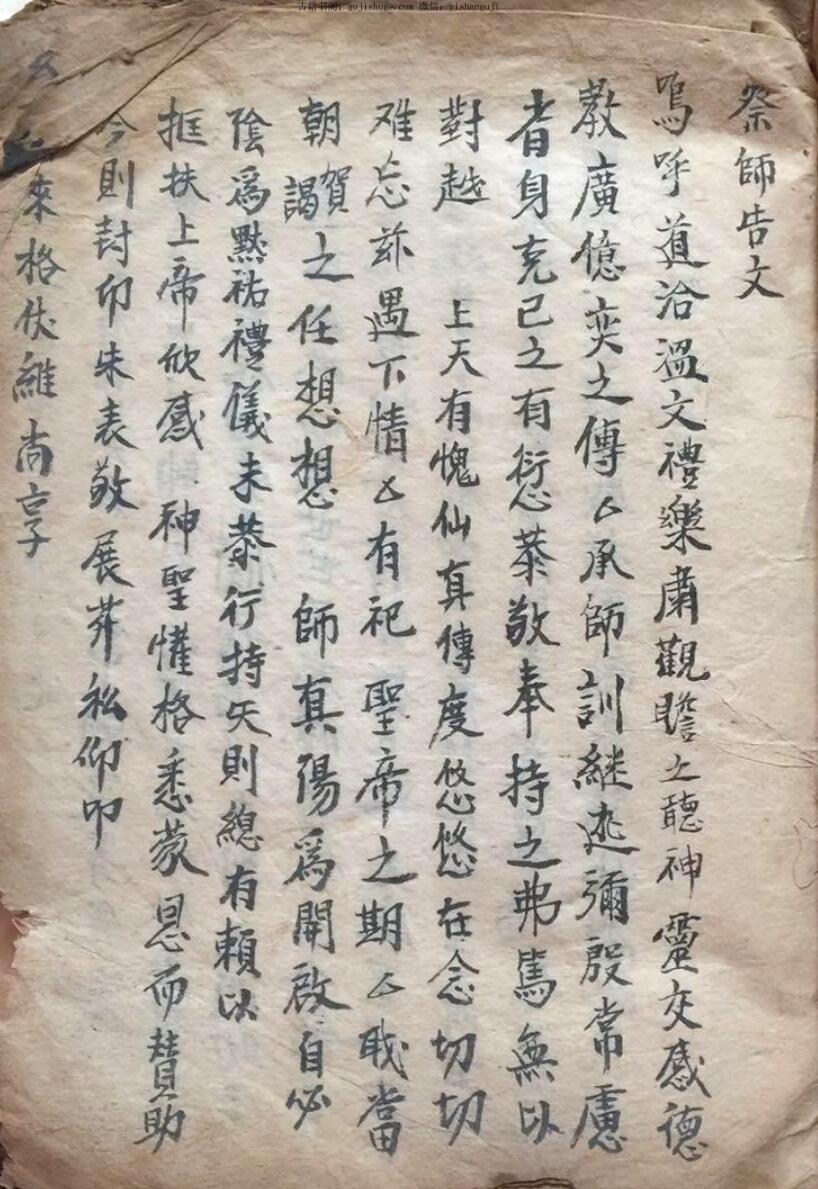 古籍书阁: gujishuge.com 微信: yishanguji
祭師告文
嗚呼道洽溫文禮樂肅觀瞻之聽神靈交感德
教廣億奕之傳厶承師訓継述彌殷常慮
者身克己之有愆恭敬奉持之弗篤無以
對越 上天有愧仙真傳度悠悠在念切切
难忘茲遇下情厶有祀 聖帝之期厶職當
朝賀謁之任想想 師真陽爲開啟自必
陰爲黙祐禮儀未恭行持失則緫有頼以
框扶上帝欣感 神聖懽格悉蒙 恩而賛助
今則封印朱表敬展葬私仰叩
來格伏維尚享